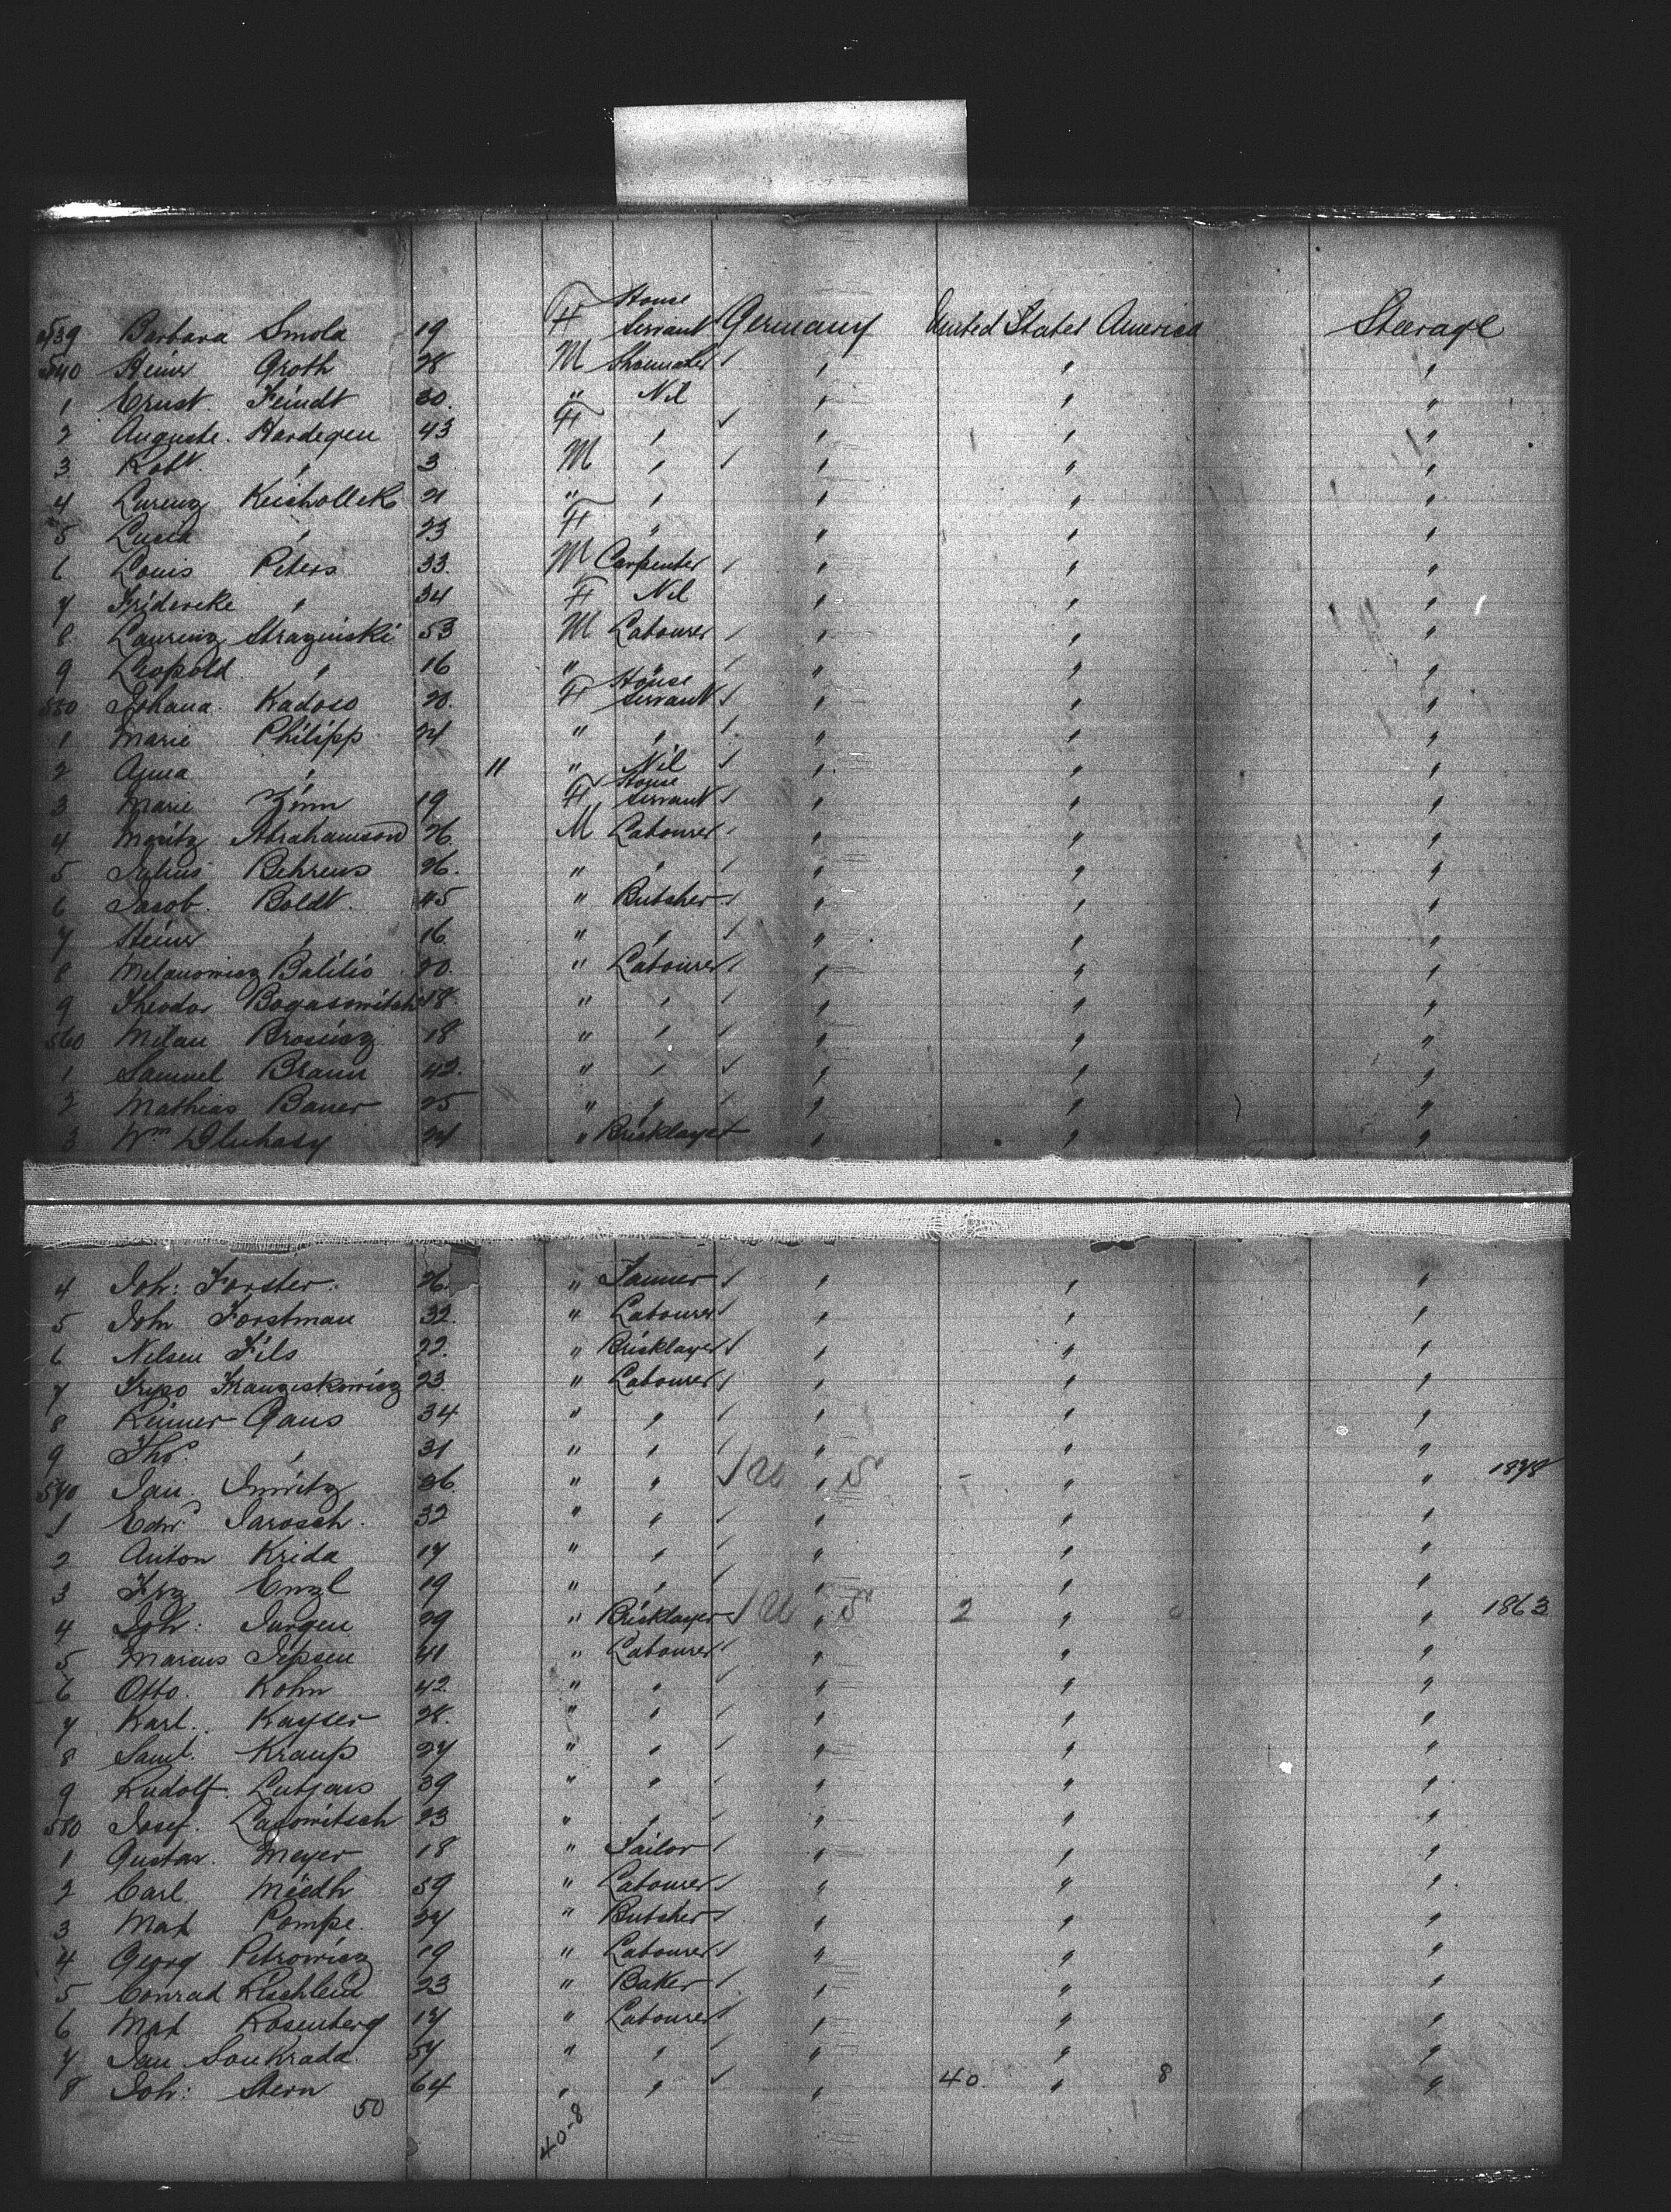 539 Barbara Smola 19 F House Servant Germany United States America Steerage
540 Heinr Groth 28 M Shoemaker " " "
1 Ernst Feindt 30 " Nil " " "
2 Auguste Hardegen 43 F " " " "
3 Robt " 3 M " " " "
4 Lurenz Keishollek 21 " " " " "
5 Lucia " 23 F " " " "
6 Louis Peters 33 M Carpenter " " "
7 Fridericke " 34 F Nil " " "
8 Laurenz Strazinski 53 M Labourer " " "
9 Leopold " 16 " " " " "
550 Johana Kadoso 20 F House Servant " " "
1 Marie Philipp 24 " " " " "
2 Agma " 11 " Nil " " "
3 Marie Zinn 19 F House Servant " " "
4 Moritz Abrahamson 26 M Labourer " " "
5 Julius Behrens 26 " " " " "
6 Jacob Boldt 45 " Butcher " " "
7 Heinr " 16 " " " " "
8 Milanowicz Balilio 20 " Labourer " " "
9 Theodor Bogasowitsch 18 " " " " "
560 Milan Brosicz 18 " " " " "
1 Samuel Braun 42 " " " " "
2 Mathias Bauer 25 " " " " "
3 Wm Dluhasy 24 " Bricklayer " " "
4 Joh: Forster 26 " Tanner " " "
5 John Forstman 32 " Labourer " " "
6 Nelsen Fils 22 " Bricklayer " " "
7 Franzeskowicz 23 " Labourer " " "
8 Reimer Gans 34 " " " " "
9 Ths " 31 " " " " "
570 Jan Imritz 36 " " U S " " " 1878
1 Edw Jarosch 32 " " " " "
2 Anton Krida 17 " " " " "
3 Frz Enzl 19 " " " " "
4 Joh: Jurgen 29 " Bricklayer U S " 2 " " 1863
5 Marcus Jepsen 41 " Labourer " " "
6 Otto Kohn 42 " " " " "
7 Karl Kayser 28 " " " " "
8 Saml Kraup 27 " " " " "
9 Rudolf Lutjens 39 " " " " "
580 Josef Lasowitsch 23 " " " " "
1 Gustav Meyer 18 " Tailor " " "
2 Carl Miedh 59 " Labourer " " "
3 Max Pompe 27 " Butcher " " "
4 Georg Petrowicz 19 " Labourer " " "
5 Conrad Rischleid 23 " Baker " " "
6 Max Rosenberg 17 " Labourer " " "
7 Jan Soukrada 57 " " " " "
8 Joh: Stern 64 " " " 40 " 8 "
50 40-8